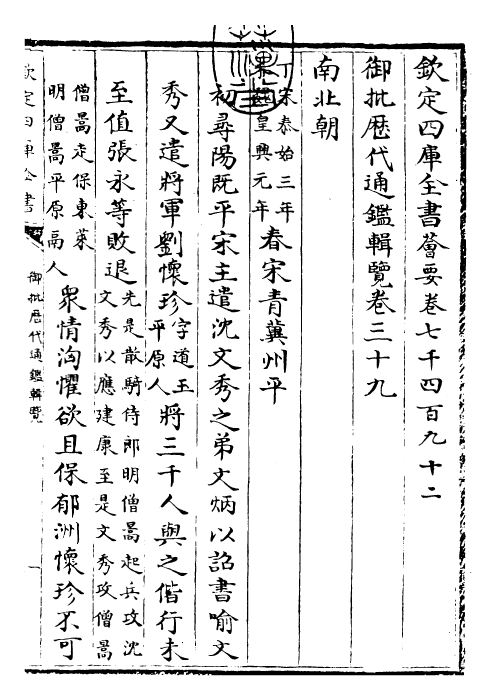 欽定四庫全書薈要卷七千四百九十二
御批歷代通鑑輯覽卷三十九
南北朝
丁未宋泰始三年
魏皇興元年
春宋青冀州平
初尋陽既平宋主遣沈文秀之弟文炳以詔書喻文
秀又遣將軍劉懷珍
字道玉
平原人
將三千人與之偕行未
至值張永等敗退
先是散騎侍郎明僧暠起兵攻沈
文秀以應建康至是文秀攻僧暠
僧暠走保東萊
明僧暠平原鬲人
眾情洶懼欲且保郁洲懷珍不可
欽定四庫全書
御批歷代通鑑輯覽
一